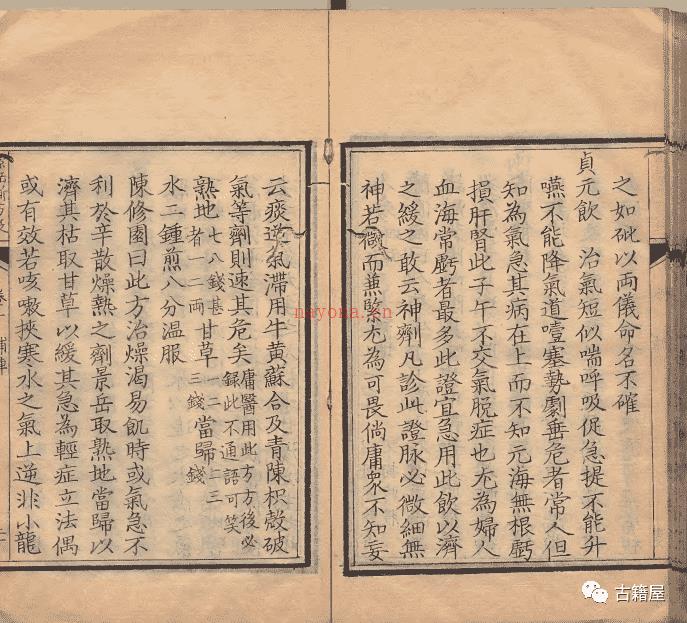 之如砒以兩儀命名不確
貞元飲　治氣短似喘呼吸促急提不能升
嚥不能降氣道噎塞勢劇垂危者常人但
知為氣急其病在上而不知元海無根虧
損肝腎此子午不交氣脱症也尤為婦人
血海常虧者最多此證宜急用此飲以濟
之緩之敢云神劑凡診此證脉必微細無
神若微而兼緊尤為可畏倘庸衆不知妄
云痰逆氣滯用牛黄蘇合及青陳枳殼破
氣等劑則速其危矣庸醫用此方方後必
録此不通語可笑
熟地七八錢甚
者一二兩甘草一二
三錢當歸二三
錢
水二鍾煎八分温服
陳修園曰此方治燥渴易飢時或氣急不
利於辛散燥熱之劑景岳取熟地當歸以
濟其枯取甘草以緩其急為輕症立法偶
或有效若咳嗽挾寒水之氣上逆非小龍
nayona.cn
古籍屋